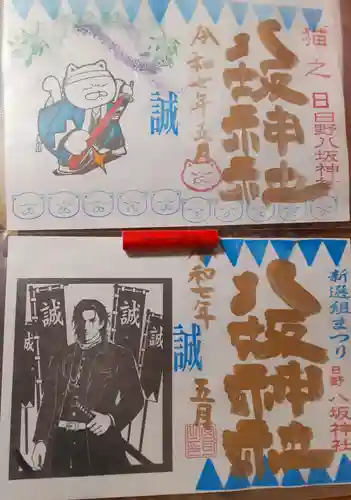 猫之日
日野八坂神社
八坂神社
令和七年五月
誠
新選組まつり
日野八坂神社
八坂神社
令和七年
五月
誠
誠
誠
誠
誠